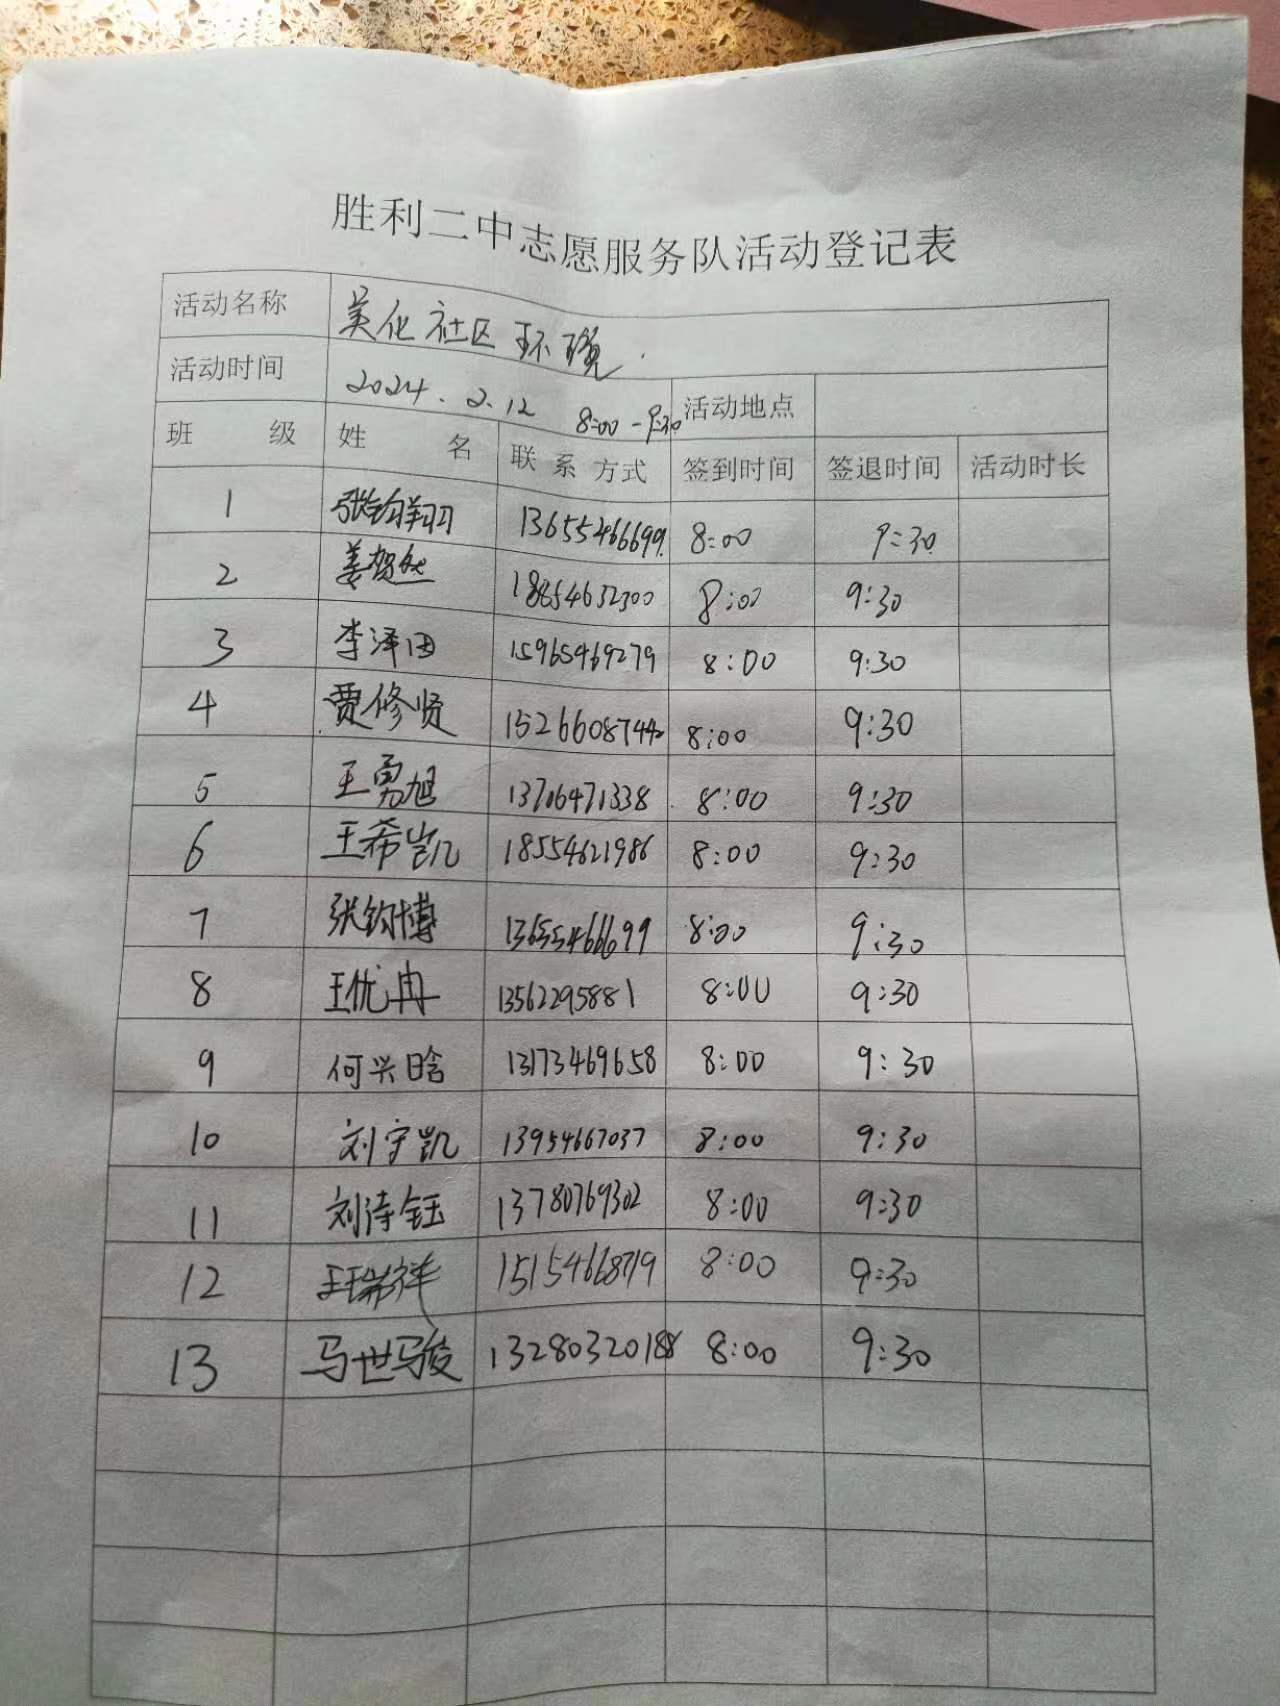 胜利二中志愿服务队活动登记表
活动名称 美化社区环境
活动时间 2024.2.12 8:00-9:30 活动地点
班 级 姓 名 联系方式 签到时间 签退时间 活动时长
1 张钧翔 13655466699 8:00 9:30
2 姜贺 18854632300 8:00 9:30
3 李泽田 15965469279 8:00 9:30
4 贾修贤 15266087442 8:00 9:30
5 王勇旭 13706471338 8:00 9:30
6 王希凯 18554621986 8:00 9:30
7 张钧博 13655466699 8:00 9:30
8 王优冉 13562295881 8:00 9:30
9 何兴晗 13173469658 8:00 9:30
10 刘宇凯 13954667037 8:00 9:30
11 刘诗钰 13780769302 8:00 9:30
12 王瑞祥 15154668719 8:00 9:30
13 马世骏 13280320188 8:00 9:30